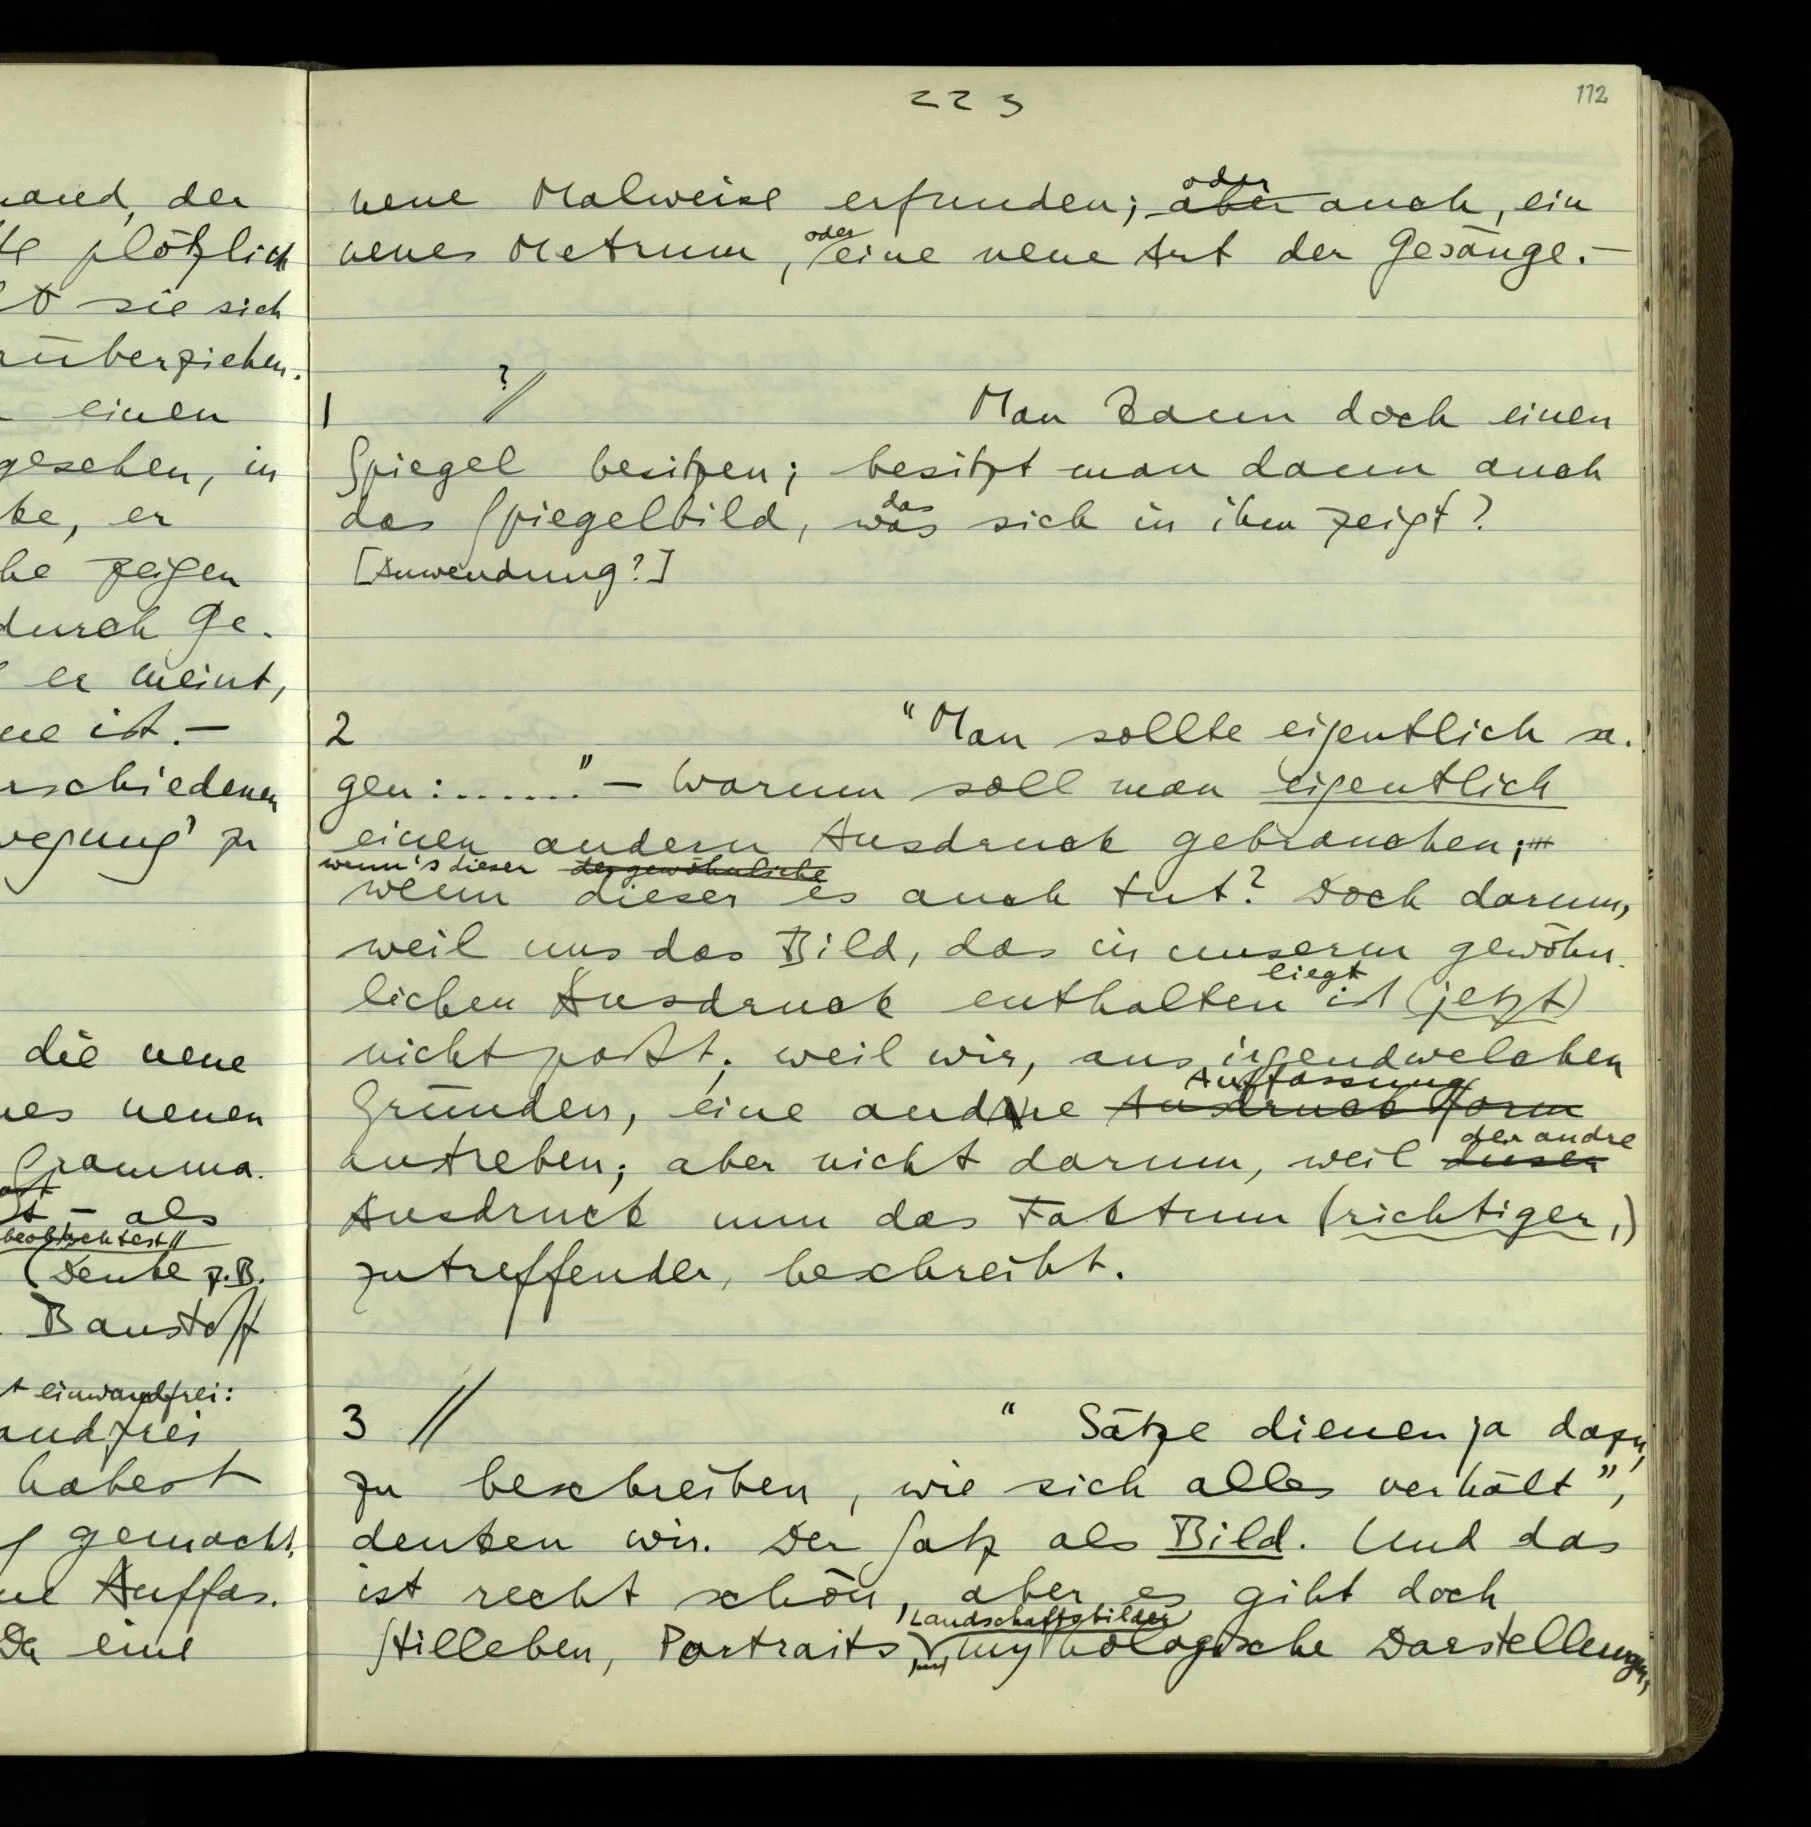 nand, der
te plötzlich
t sie sich
rüberziehen.
einen
gesehen, in
ke, er
he zeigen
durch Ge-
er meint,
ne ist. –
rschiedenen
wegung' zu
die neue
nes neuen
Gramma-
– als
beobachtest //
(Denke z.B.
Baustoff
t einwandfrei:
andfrei
habest
gemacht,
ne Auffas-
Da eine
223
112
oder
neue Malweise erfunden; aber auch, ein
oder
neues Metrum, eine neue Art der Gesänge. –
? //
1 Man kann doch einen
Spiegel besitzen; besitzt man dann auch
das
das Spiegelbild, was sich in ihm zeigt?
[Anwendung?]
2 "Man sollte eigentlich sa-
gen: ......." – Warum soll man eigentlich
einen andern Ausdruck gebrauchen;
wenn's dieser der gewöhnliche
wenn dieser es auch tut? Doch darum,
weil uns das Bild, das in unserm gewöhn-
liegt
lichen Ausdruck enthalten ist (jetzt)
nicht paßt; weil wir, aus irgendwelchen
Auffassung
Gründen, eine andere Ausdrucksform
anstreben; aber nicht darum, weil dieser
der andre
Ausdruck nun das Faktum (richtiger,)
zutreffender, beschreibt.
3 // " Sätze dienen ja dazu,
zu beschreiben, wie sich alles verhält",
denken wir. Der Satz als Bild. Und das
ist recht schön, aber es gibt doch
, Landschaftsbilder
Stilleben, Portraits, mythologische Darstellungen,